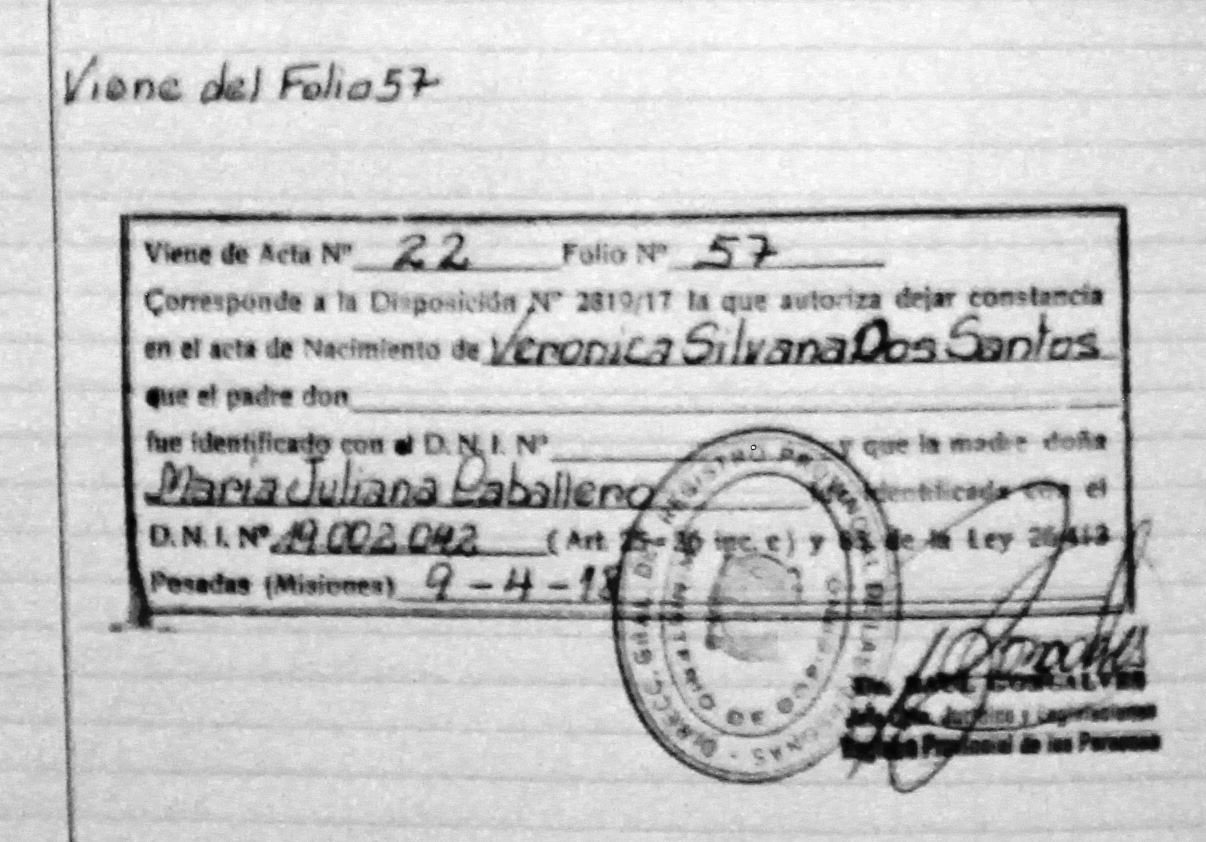 Viene del Folio 57
Viene de Acta Nº 22 Folio Nº 57
Corresponde a la Disposición Nº 2819/17 la que autoriza dejar constancia
en el acta de Nacimiento de Veronica Silvana Dos Santos
que el padre don
fue identificado con el D. N. I. Nº y que la madre doña
Maria Juliana Caballero identificada con el
D. N. I. Nº 19.002.042 (Art. inc. c) y de la Ley 26413
Posadas (Misiones) 9-4-18
DIRECC. GRAL DE REGISTRO PROVINCIAL DE LAS PERSONAS
MINISTERIO DE GOBIERNO
GONCALVES
Jefe Dpto. Jurídico y Legislaciones
Registro Provincial de las Personas